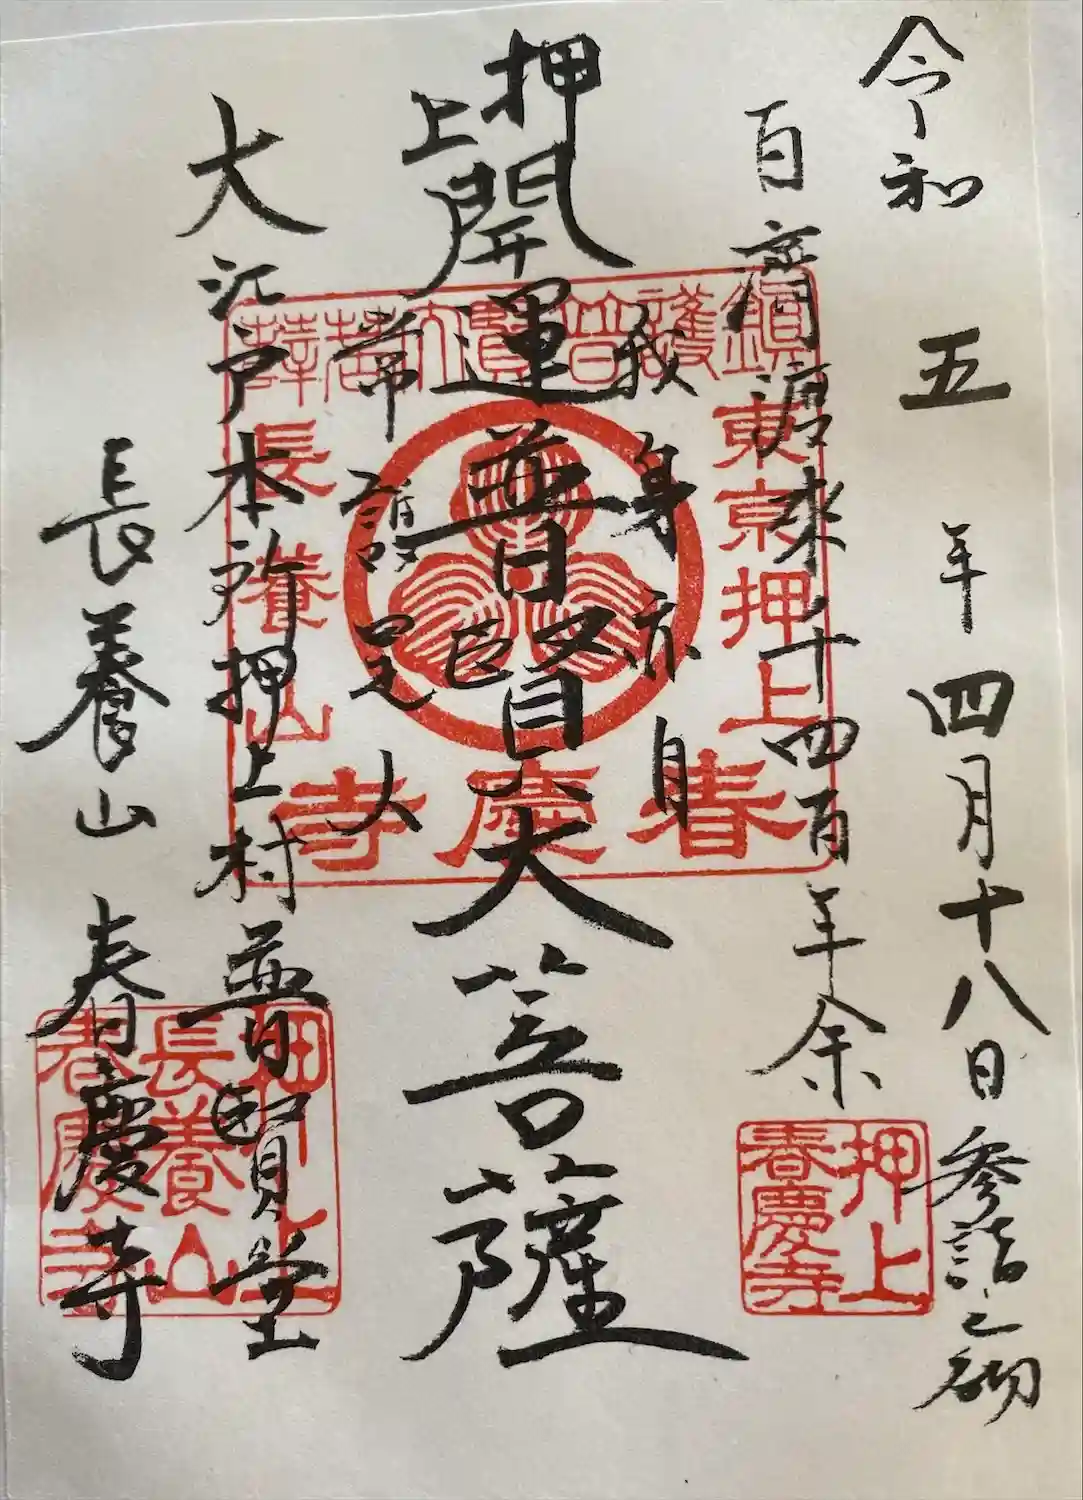 令和五年四月十八日参詣之砌
百済渡来千四百年余
我身亦自
押上
開運普賢大菩薩
常護是人
大江戸本所押上村普賢堂
長養山春慶寺
鎮護普賢大
東京押上
長養山
春慶寺
押上
春慶寺
押上
長養山
春慶寺